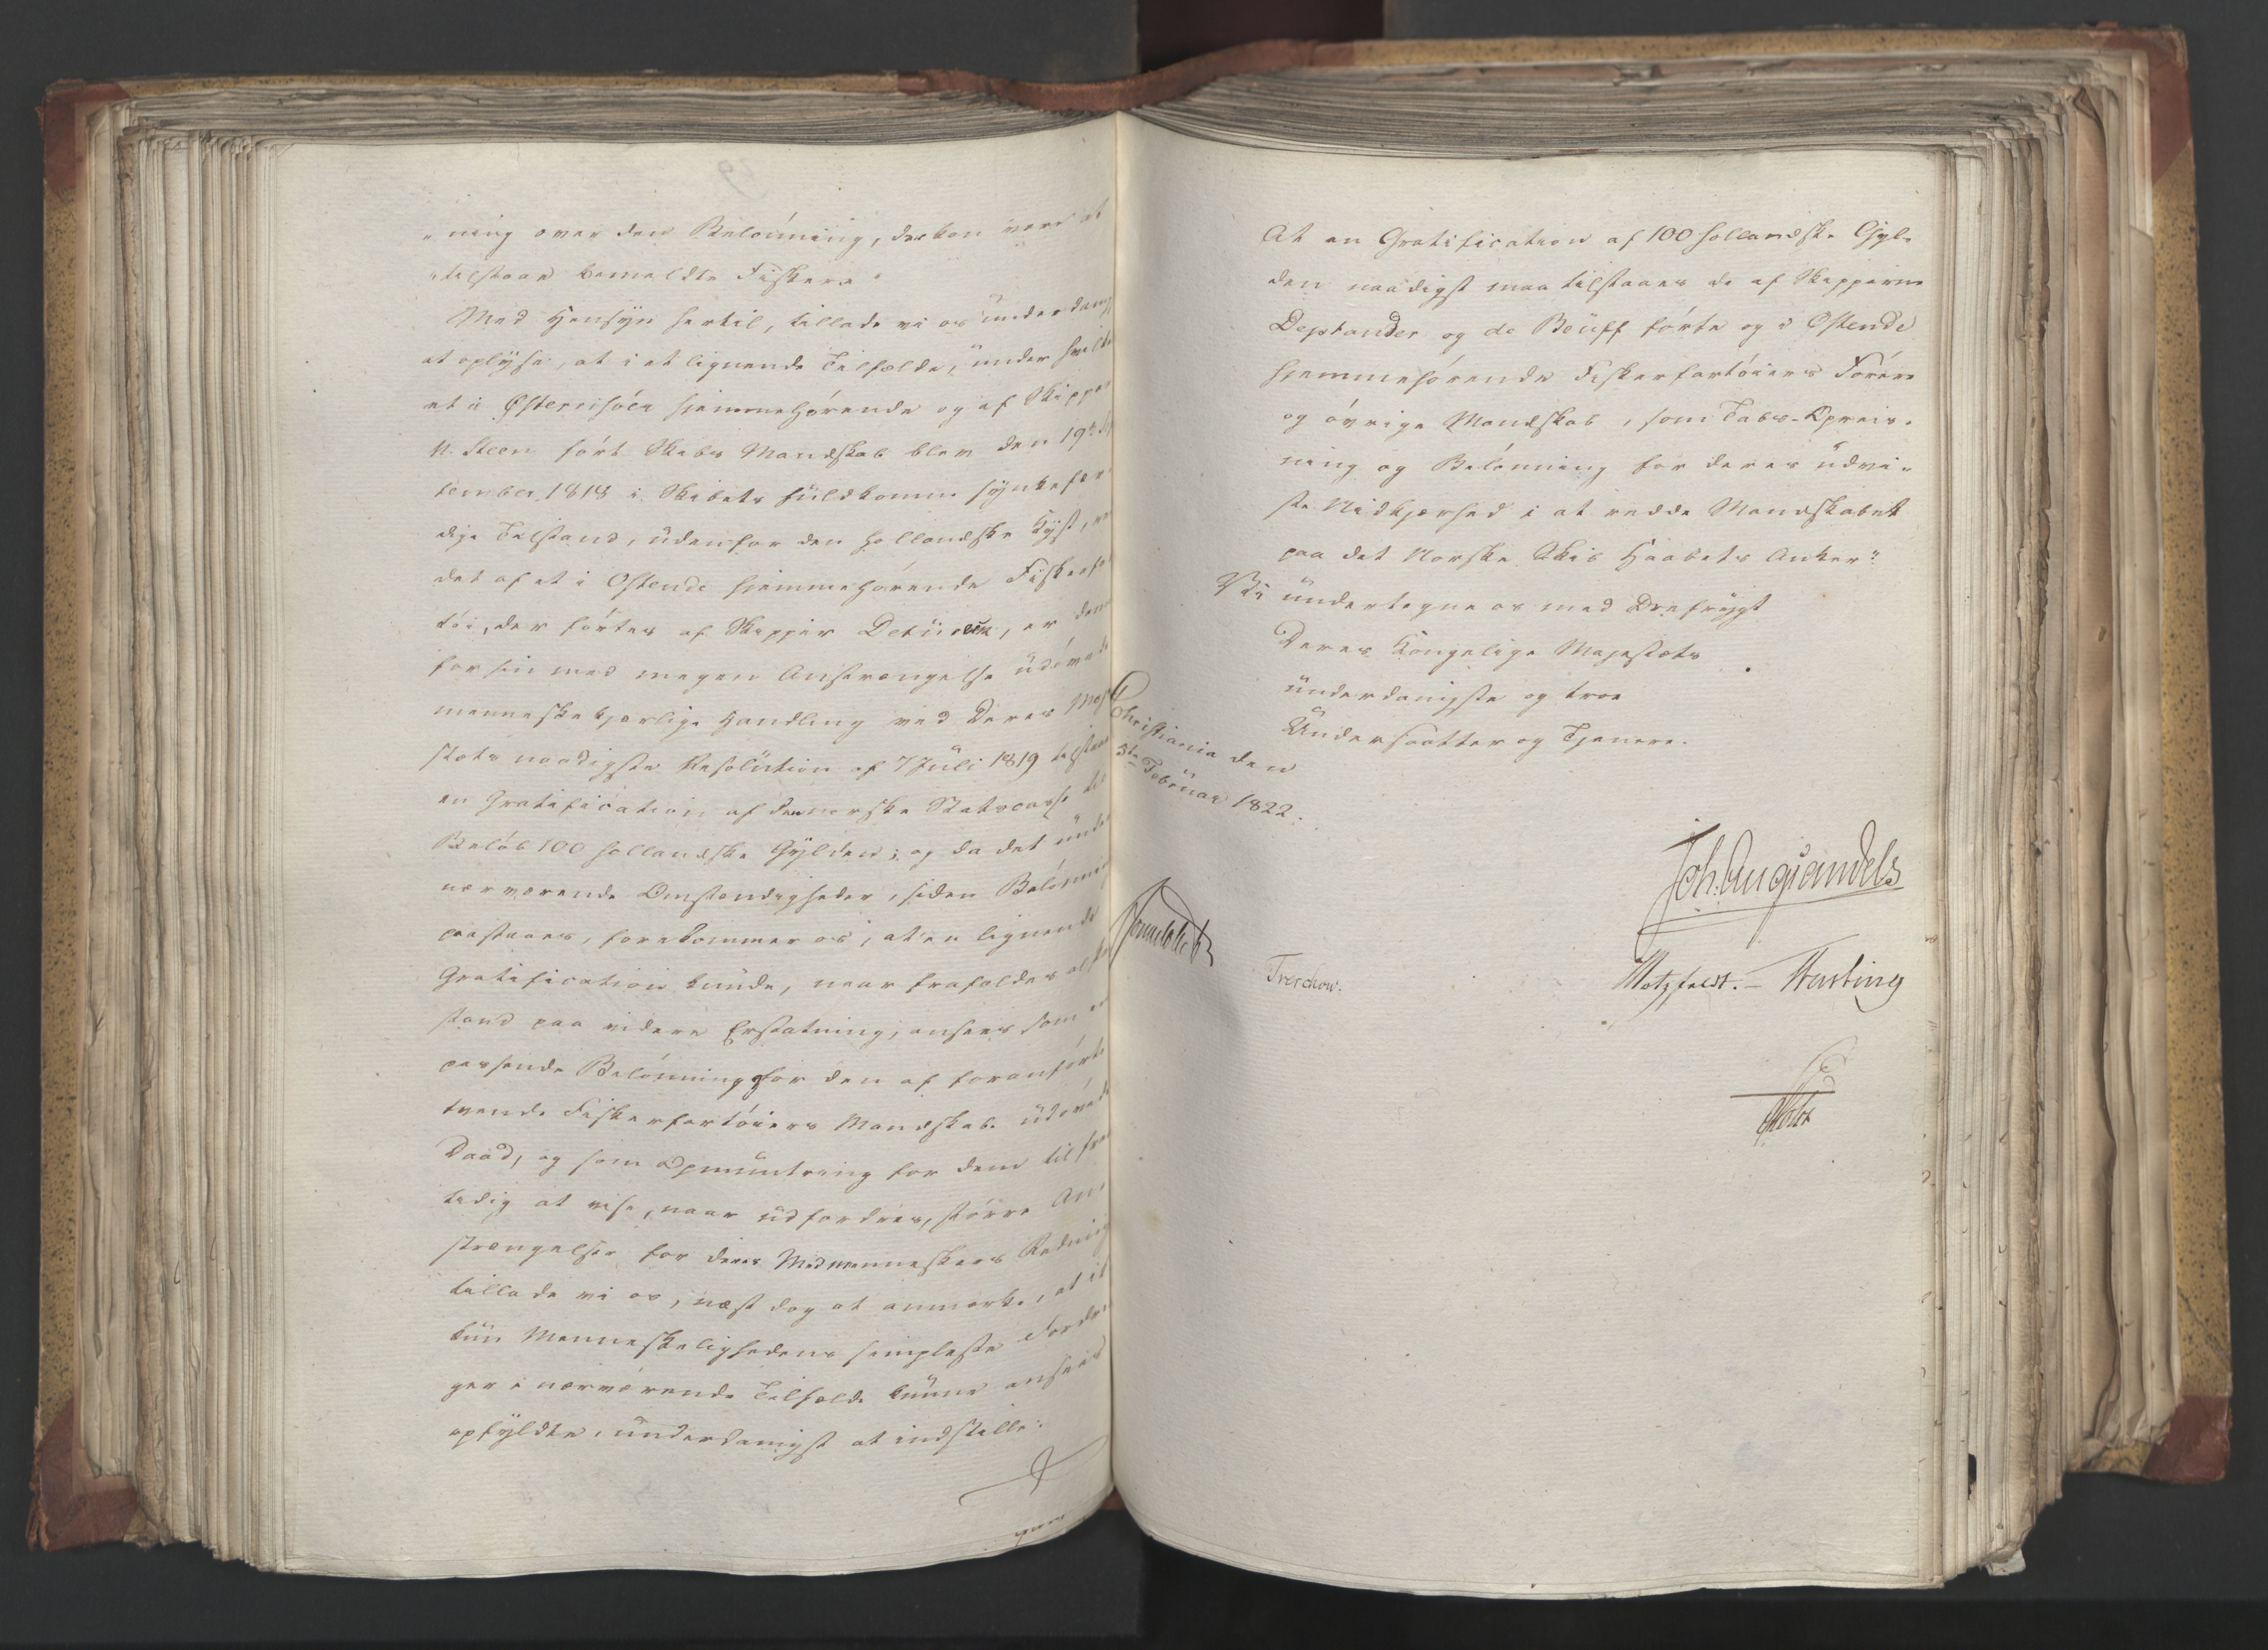 "ning over den Belönning, der kan være at
"tilstaae bemeldte Fiskere"
Med Hensyn hertil, tillade vi os underdanigst
at oplyse, at i et lignende Tilfælde, under hvilket
et i Østeriisöer hjemmehørende og af Skipper
N. Steen fört Skibs Mandskab blev den 19de
tember 1818 i Skibets fuldkomne synkefær
dige Tilstand, udenfor den hollandske Kyst,
det af et i Ostende hjemmehörende Fiskerfar
töi, der förtes af Skipper, er denne
for sin med megen Anstrængelse udövede
menneskekjærlige Handling ved Deres Maje
stæts naadigste Resolution af 7 Juli 1819 tilstaaet
en Gratification af den norske Statscasse til
Belöb 100 hollandske Gylden; og da det under
nærværende Omstændigheder, siden Belönning
paastaaes, forekommer os, at en lignende
Gratification kunde, naar frafaldes al
stand paa videre Erstatning, ansees som en
passende Belönning for den af foranförte
tvende Fiskerfartöiers Mandskab udövede
Daad, og som Opmuntring for dem til frem
tidig at vise, naar udfordres, större An
strængelser for deres Medmenneskers Redning
tillade vi os, næst dog at anmærke, at
kun Menneskelighedens simpleste Fordrin
ger i nærværende Tilfælde kunne ansees
opfyldte, underdanigst at indstille:
At en Gratification af 100 hollandske Gyl-
den naadigst maa tilstaaes de af Skipperne
Deplander og de Beuff förte og i Ostende
hjemmehörende Fiskerfartöiers Förere
og övrige Mandskab, som Tabs-Opreis-
ning og Belönning for deres udvi-
ste Nidkjærhed i at redde Mandskabet
paa det Norske Skib Haabets Anker"
Vi undertegne os med Ærefrygt
Deres Kongelige Majestæts
underdanigste og troe
Undersaatter og Tjenere.
Christiania den
5te Februar 1822.
Joh. Aug. Sandels
Sommerhielm
Treschow.
Motzfeldt. - Fasting
Holst